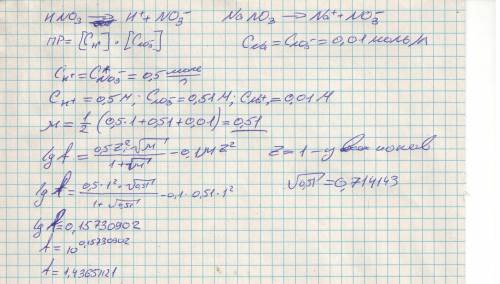 HNO₃ ⇄ H⁺ + NO₃⁻   NaNO₃ → Na⁺ + NO₃⁻
ПР = [C_H⁺] · [C_NO₃⁻]   C_Na = C_NO₃⁻ = 0,01 моль/л
C_H⁺ = C_NO₃⁻ = 0,5 моль/л
C_H⁺ = 0,5 М; C_NO₃⁻ = 0,51 М; = 0,01 М
м = 1/2 (0,5·1 + 0,51 + 0,01) = 0,51
lg f = 0,5 z² · √м / 1 + √м − 0,1 м z²   z = 1 – у ионов
lg f = 0,5 · 1² · √0,51 / 1 + √0,51 − 0,1 · 0,51 · 1²   √0,51 = 0,714143
lg f = 0,15730902
f = 10^0,15730902
f = 1,4365121